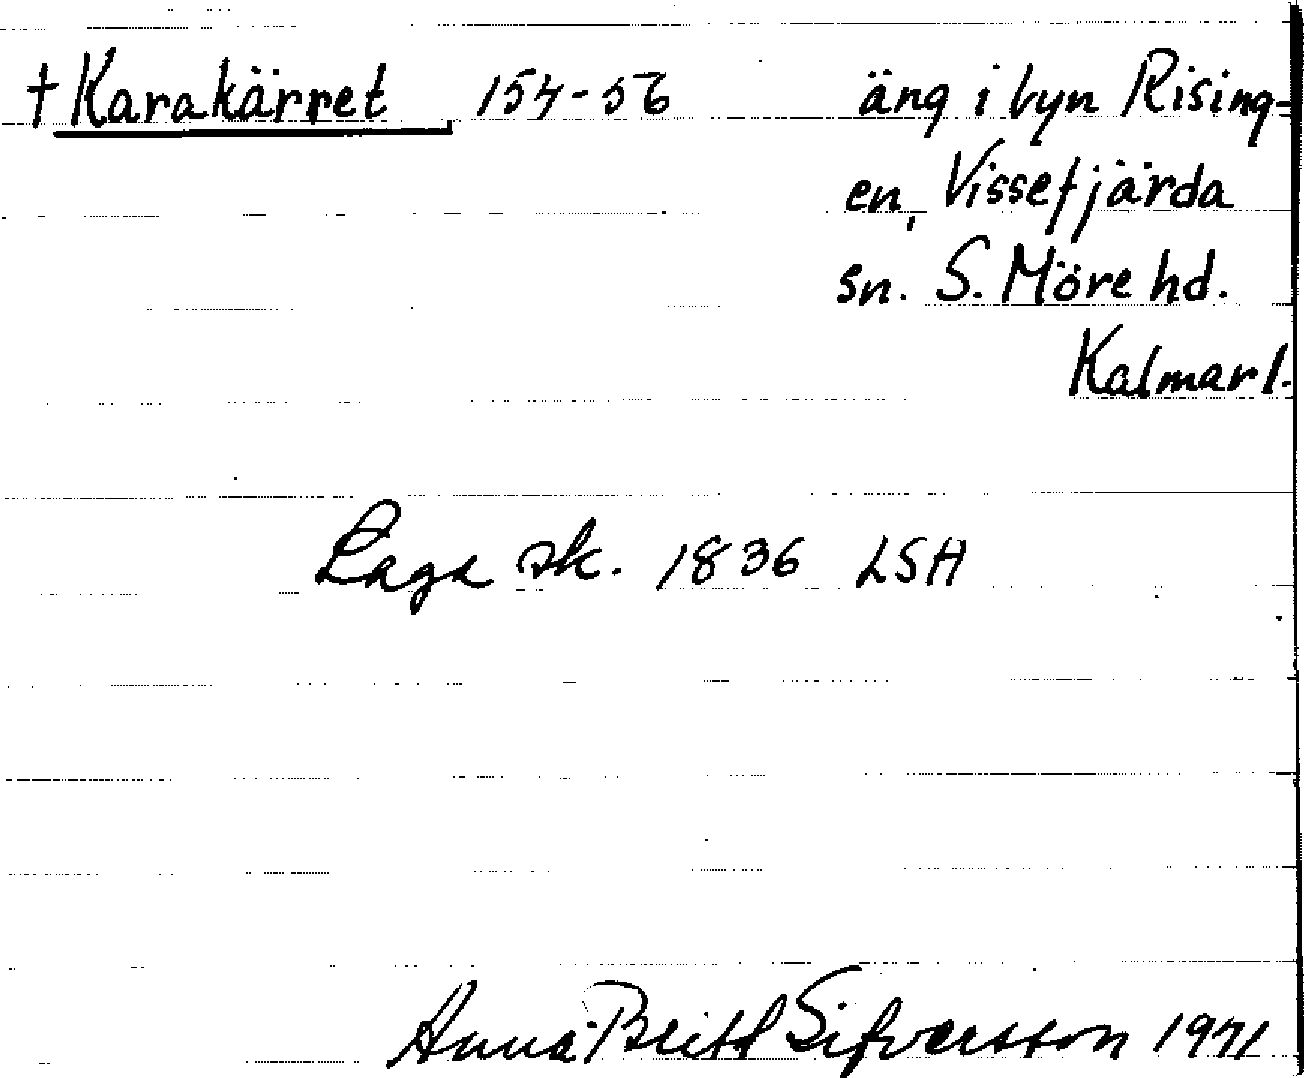 † Karakärret 154-56 äng i byn Rising-
en, Vissefjärda
sn. S. Möre hd.
Kalmar l.
Laga sk. 1836 LSH
Anna-Britt Sifversson 1971